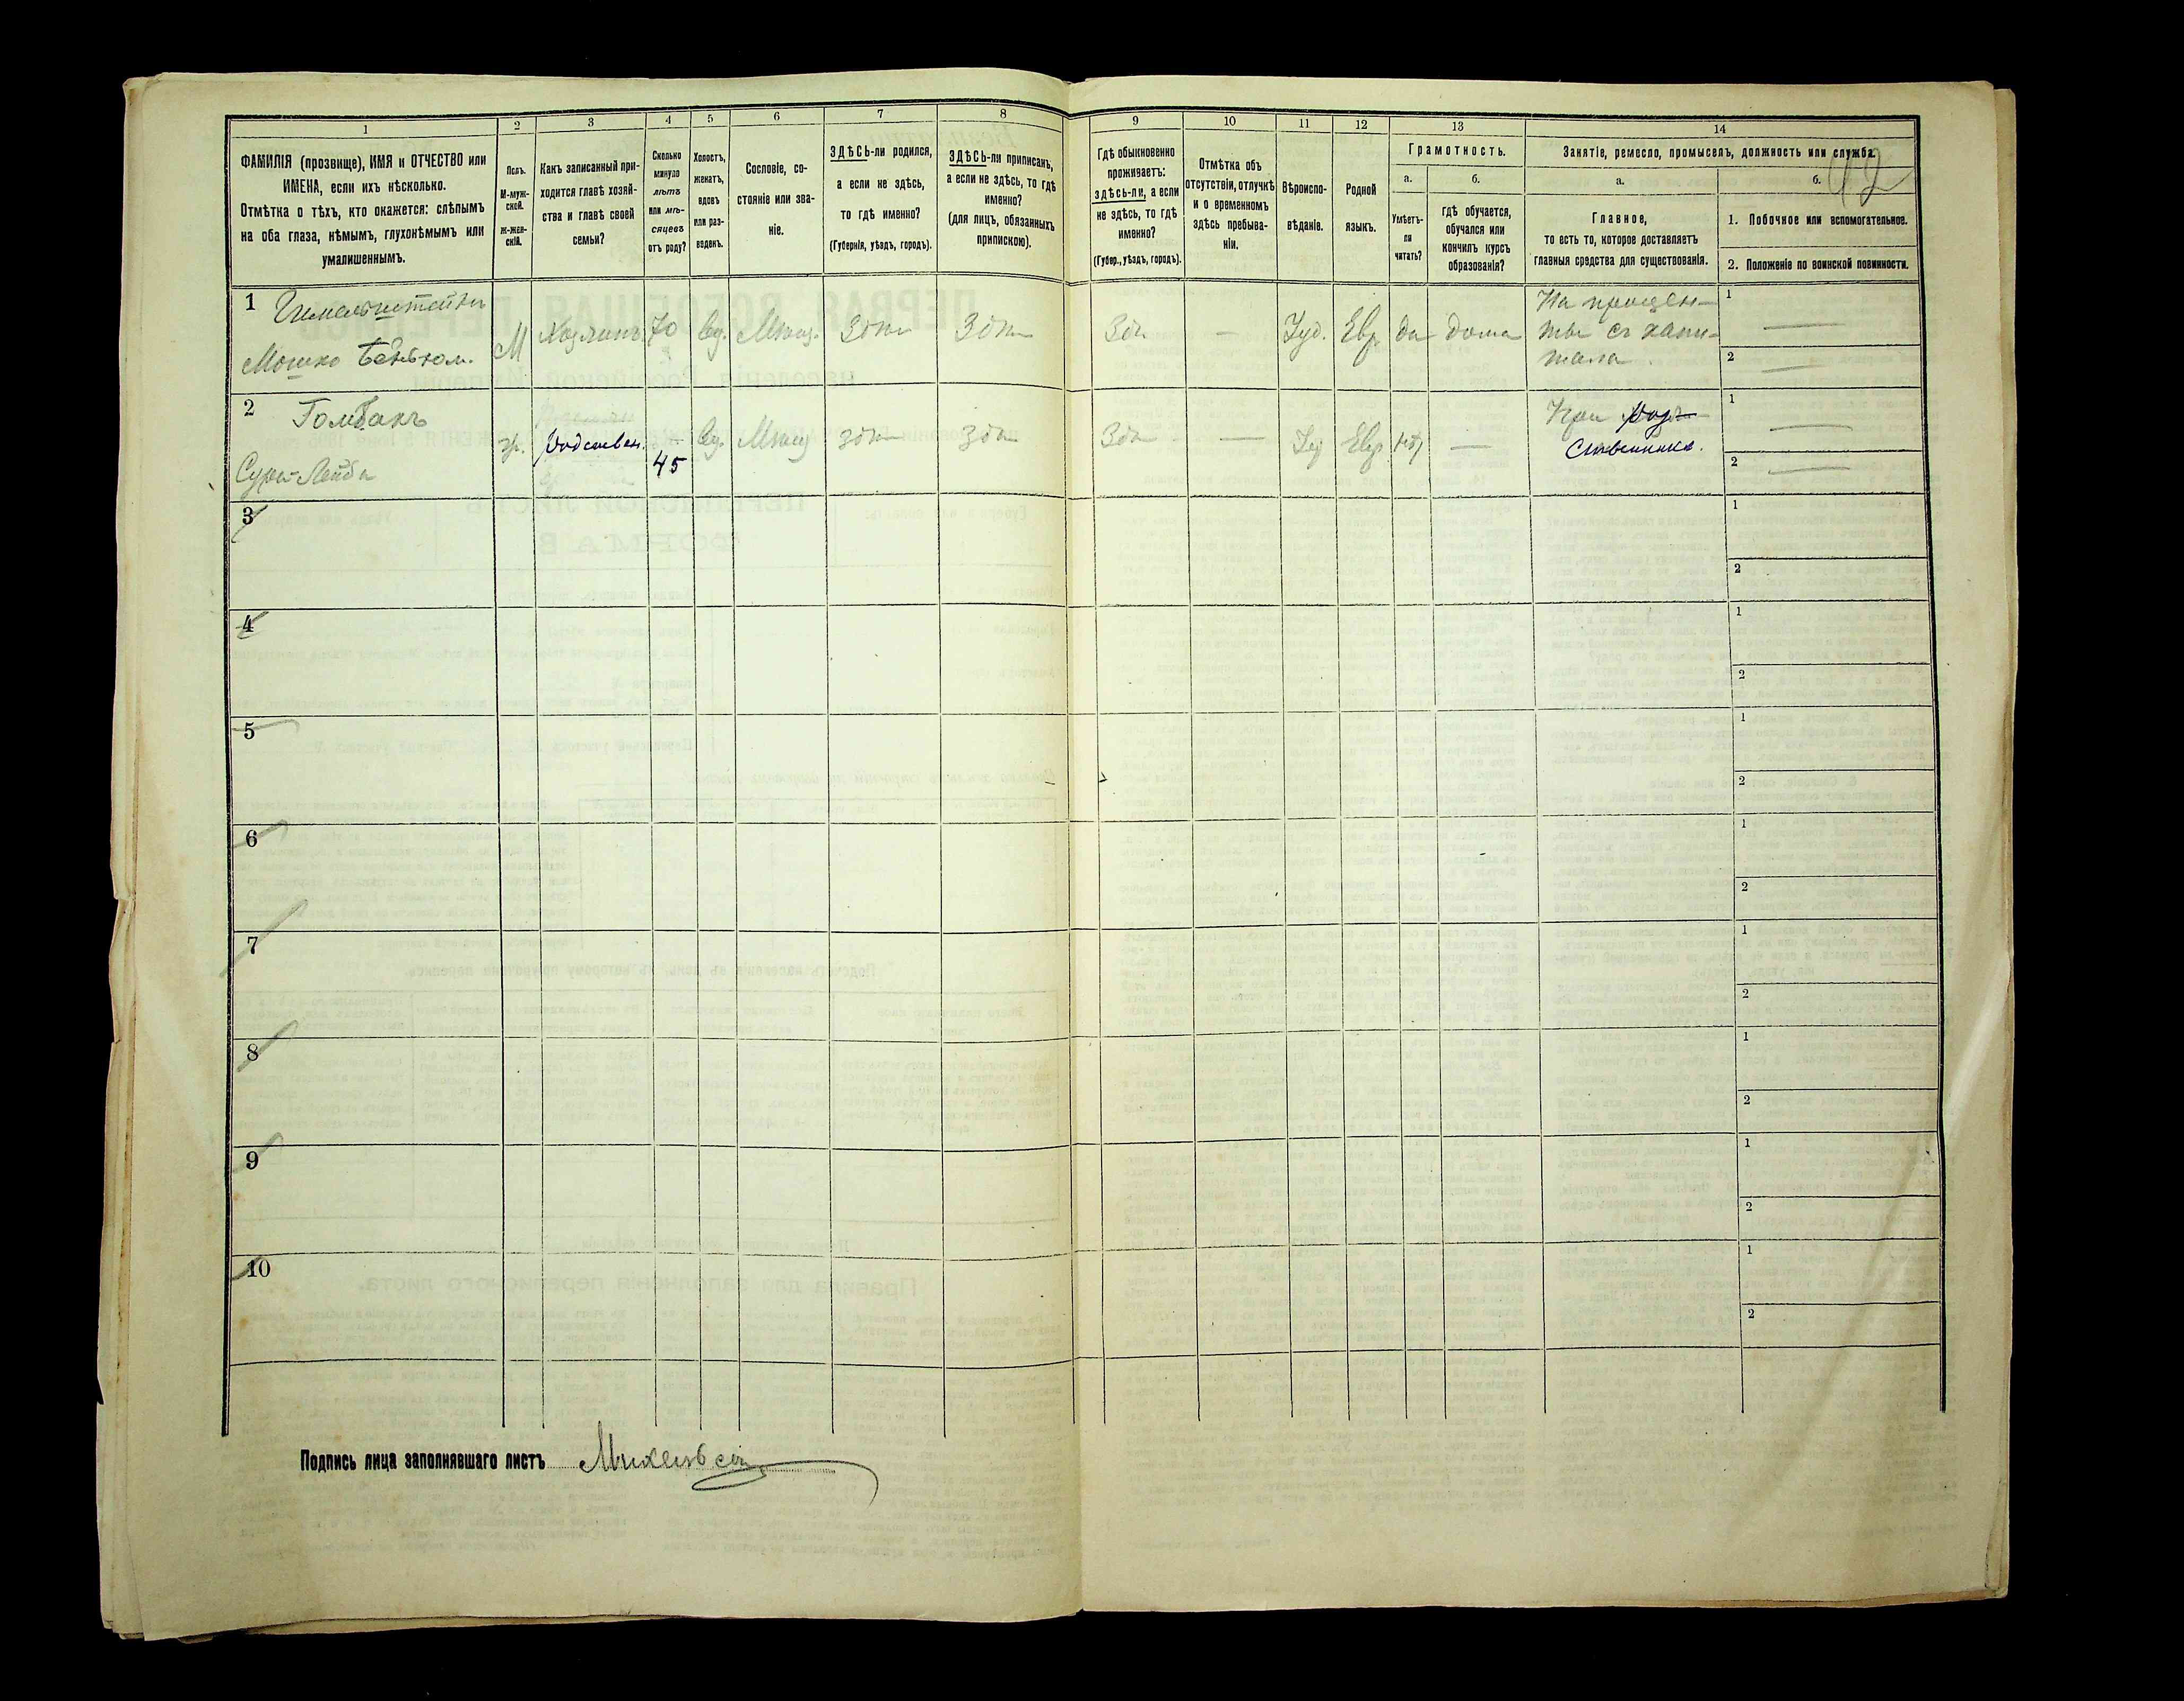 1 2 3 4 5 6 7 8 9 10 11 12 13 14
ФАМИЛІЯ (прозвище), ИМЯ и ОТЧЕСТВО или
ИМЕНА, если ихъ нѣсколько.
Отмѣтка о тѣхъ, кто окажется: слѣпымъ
на оба глаза, нѣмымъ, глухонѣмымъ или
умалишеннымъ.
Полъ.
М-муж-
ской.
Ж-жен-
скій.
Какъ записанный при-
ходится главѣ хозяй-
ства и главѣ своей
семьи?
Сколько
минуло
лѣтъ
или мѣ-
сяцевъ
отъ роду?
Холостъ,
женатъ,
вдовъ
или раз-
веденъ.
Сословіе, со-
стояніе или зва-
ніе.
ЗДѢСЬ-ли родился,
а если не здѣсь,
то гдѣ именно?
(Губернія, уѣздъ, городъ).
ЗДѢСЬ-ли приписанъ,
а если не здѣсь, то гдѣ
именно?
(для лицъ, обязанныхъ
припискою).
Гдѣ обыкновенно
проживаетъ:
здѣсь-ли, а если
не здѣсь, то гдѣ
именно?
(Губер., уѣздъ, городъ).
Отмѣтка объ
отсутствіи, отлучкѣ
и о временномъ
здѣсь пребыва-
ніи.
Вѣроиспо-
вѣданіе.
Родной
языкъ.
Грамотность.
а.
Умѣетъ-
ли
читать?
б.
гдѣ обучается,
обучался или
кончилъ курсъ
образованія?
Занятіе, ремесло, промыселъ, должность или служба.
а.
Главное,
то есть то, которое доставляетъ
главныя средства для существованія.
б.
1. Побочное или вспомогательное.
2. Положеніе по воинской повинности.
1
Мошко
М
Хозяинъ
70
Вд.
Мѣщ.
Здѣсь
Здѣсь
Здѣсь
—
Іуд.
Евр
да
дома
На процен-
ты съ капи-
тала
1 —
2 —
2 Гомбакъ
Сура-Лейба
ж.
родствен.
45
Вд.
Мѣщ
здѣсь
здѣсь
Здѣсь
—
Іуд
Евр
нѣт
—
При род-
ственника.
1 —
2 —
3
1
2
4
1
2
5
1
2
6
1
2
7
1
2
8
1
2
9
1
2
10
1
2
Подпись лица заполнявшаго листъ